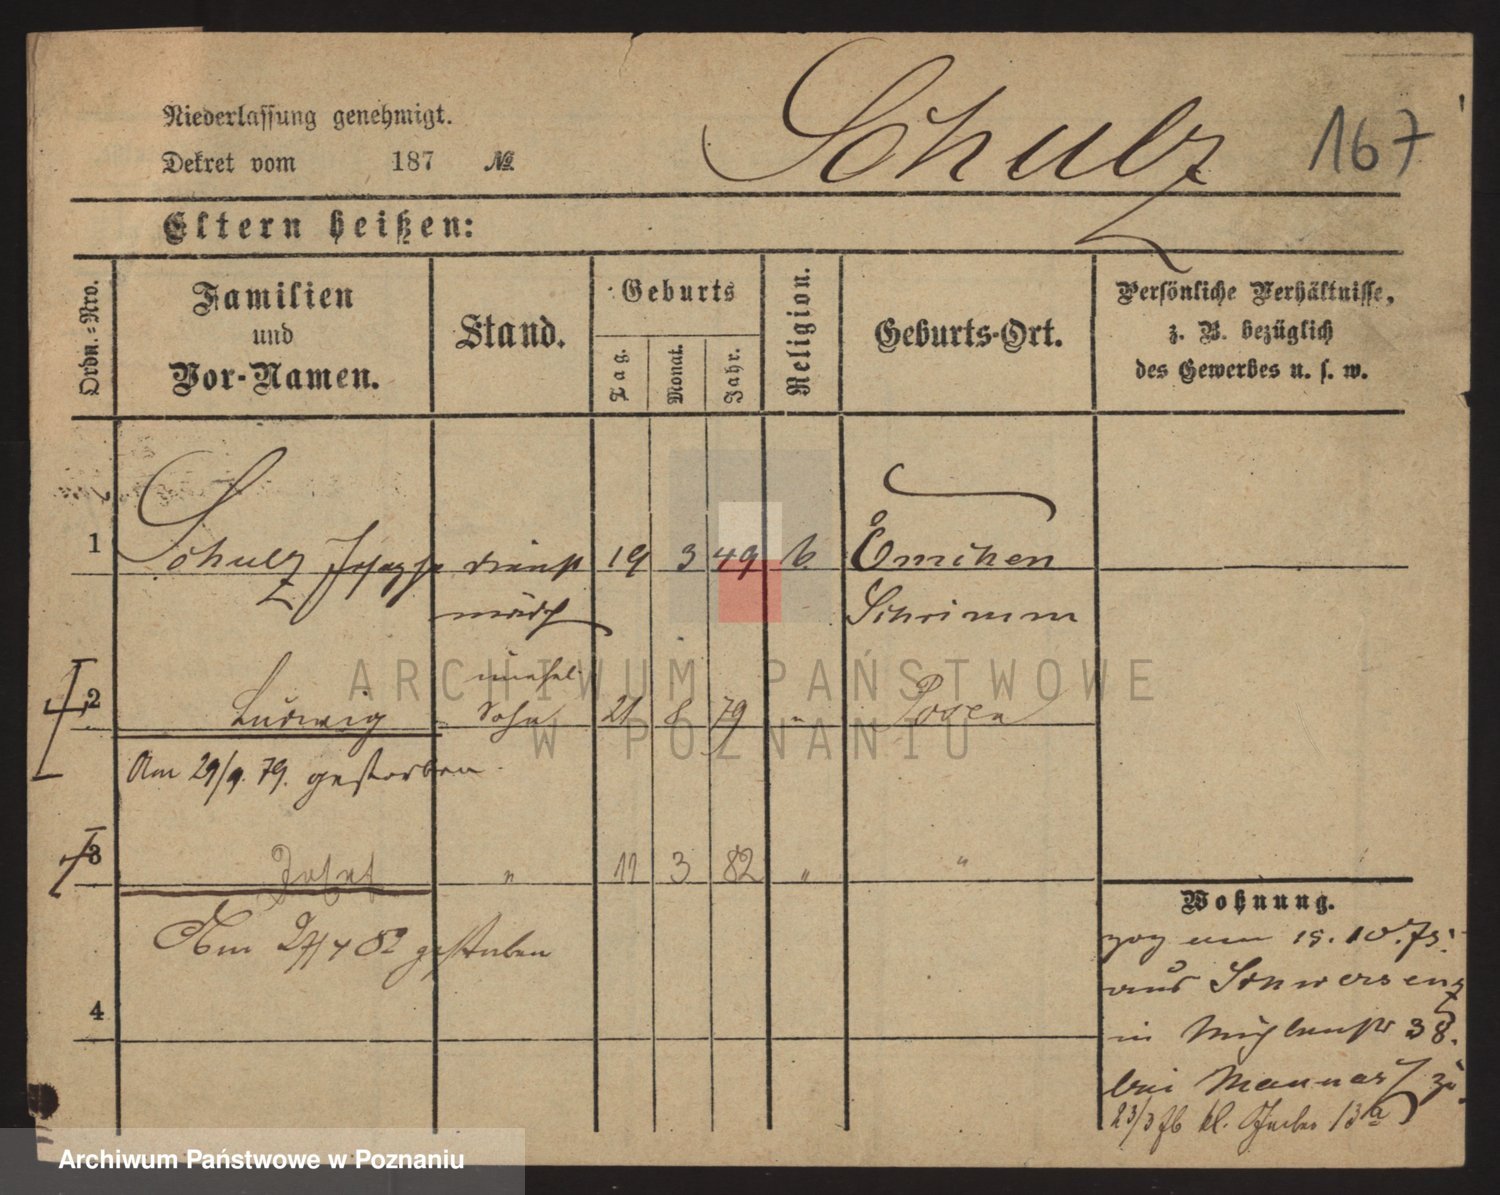 Schulz
167
Niederlassung genehmigt.
Dekret vom 187 №
Eltern heißen:
Ordn.=Nro.
Familien
und
Vor-Namen.
Stand.
Geburts
Tag.
Monat.
Jahr.
Religion.
Geburts-Ort.
Persönliche Verhältnisse,
z. B. bezüglich
des Gewerbes u. s. w.
1 Schulz Josepha Dienst 19 3 49 Emchen
Schrimm
2 Ludwig unehel. Sohn 21 8 79 " Posen
Am 29/9. 79. gestorben.
3 Josef " 11 3 82 " "
Am 27/4 82 gestorben
4
Wohnung.
zog am 15. 10. 75.
aus Schwersenz
in Mühlenstr 38.
bei zu.
23/3 76 kl. 13a
ARCHIWUM PAŃSTWOWE
W POZNANIU
Archiwum Państwowe w Poznaniu